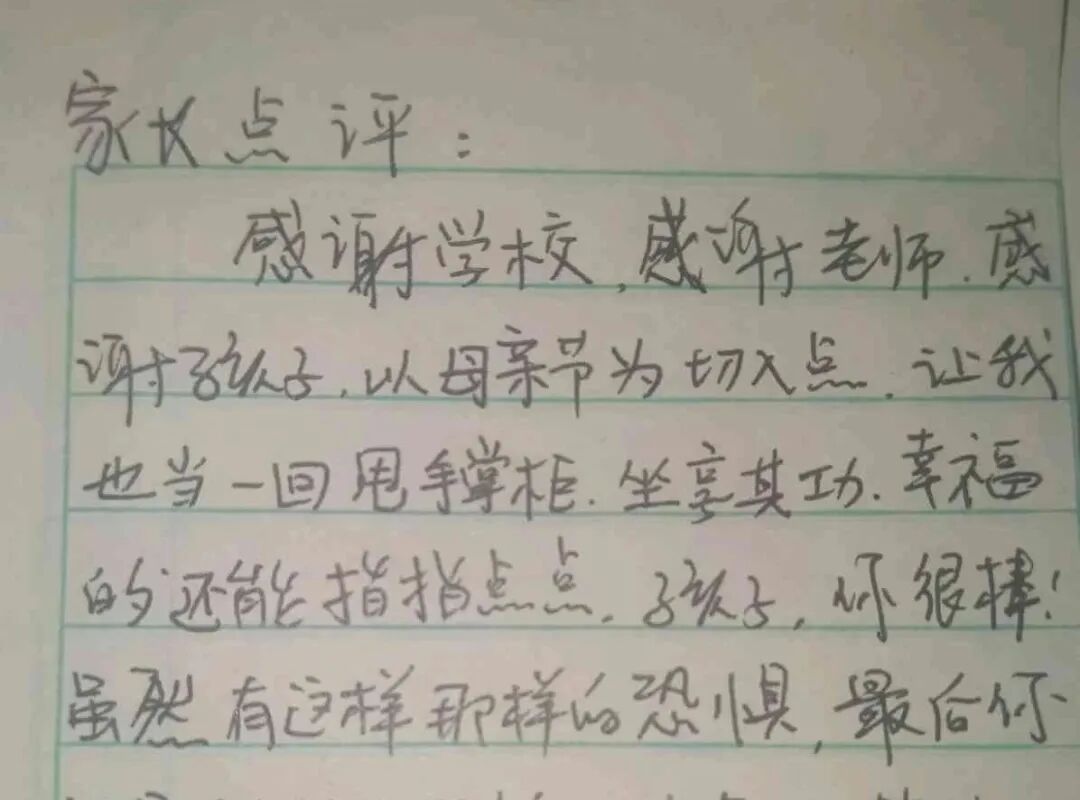 家长点评：
感谢学校，感谢老师．感
谢孩子，以母亲节为切入点．让我
也当一回甩手掌柜．坐享其功．幸福
的还能指指点点．孩子，你很棒！
虽然有这样那样的恐惧，最后你